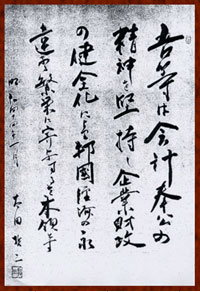 吾等は会計奉公の
精神を堅持し企業財政
の健全化により邦国経済の永
遠の繁栄に寄与するを本領とす
昭和 年一月
太田哲三